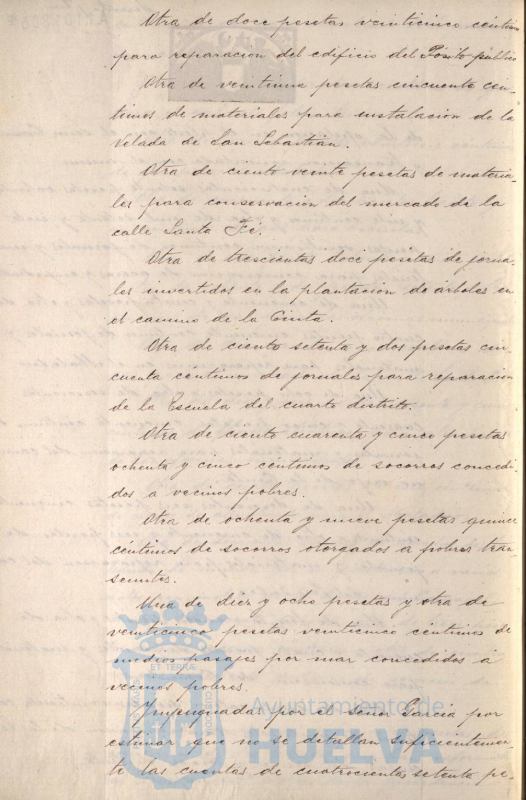 Otra de doce pesetas veinticinco céntimos
para reparación del edificio del Pósito público
Otra de veintiuna pesetas cincuenta cén-
timos de materiales para instalación de la
Velada de San Sebastián.
Otra de ciento veinte pesetas de materia-
les para conservación del mercado de la
calle Santa Fé.
Otra de trescientas doce pesetas de jorna-
les invertidos en la plantación de árboles en
el camino de la Cinta.
Otra de ciento setenta y dos pesetas cin-
cuenta céntimos de jornales para reparación
de la Escuela del cuarto distrito.
Otra de ciento cuarenta y cinco pesetas
ochenta y cinco céntimos de socorros concedi-
dos a vecinos pobres.
Otra de ochenta y nueve pesetas quince
céntimos de socorros otorgados a pobres tran-
seuntes.
Una de diez y ocho pesetas y otra de
veinticinco pesetas veinticinco céntimos de
medios pasajes por mar concedidos á
vecinos pobres.
Impugnadas por el señor García por
estimar que no se detallan suficientemen-
te las cuentas de cuatrocientas setenta pe-
Ayuntamiento de
HUELVA